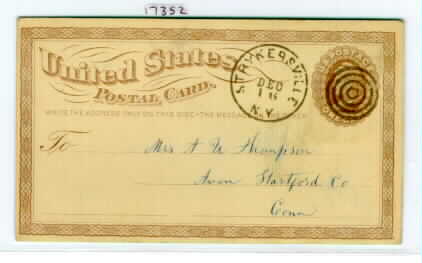 17352
United States
POSTAL CARD.
STRYKERSVILLE
DEC
16
N.Y.
WRITE THE ADDRESS ONLY ON THIS SIDE - THE MESSAGE ON THE OTHER
To
Mrs A U Thompson
Avon Hartford Co
Conn